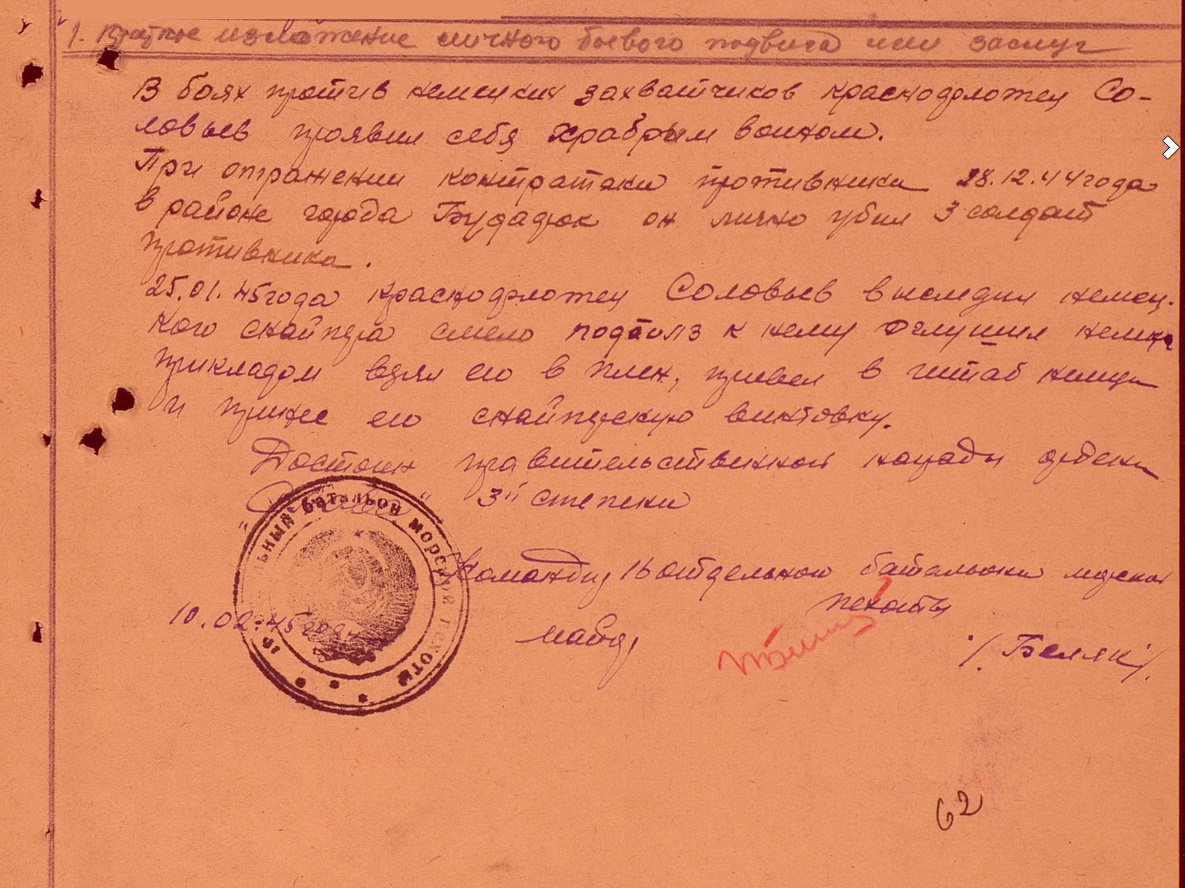 1. Краткое изложение личного боевого подвига или заслуг
В боях против немецких захватчиков краснофлотец Со-
ловьев проявил себя храбрым воином.
При отражении контратаки противника 28.12.44 года
в районе города он лично убил 3 солдат
противника.
25.01.45 года краснофлотец Соловьев выследил немец-
кого снайпера смело подполз к нему оглушил немца
прикладом взял его в плен, привел в штаб немца
и принес его снайперскую винтовку.
Достоин правительственной награды ордена
" " 3й степени
батальон морской пехоты
Командир 16 отдельного батальона морской
пехоты
10.02.45 года
майор
/Беляк/.
62